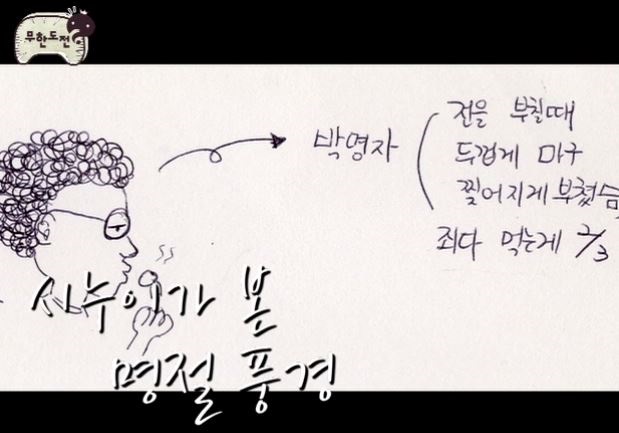 무한도전
박명자
전을 부칠때
두껍게 마구
찢어지게 부쳤음
죄다 먹는게 2/3
시누이가 본
명절 풍경